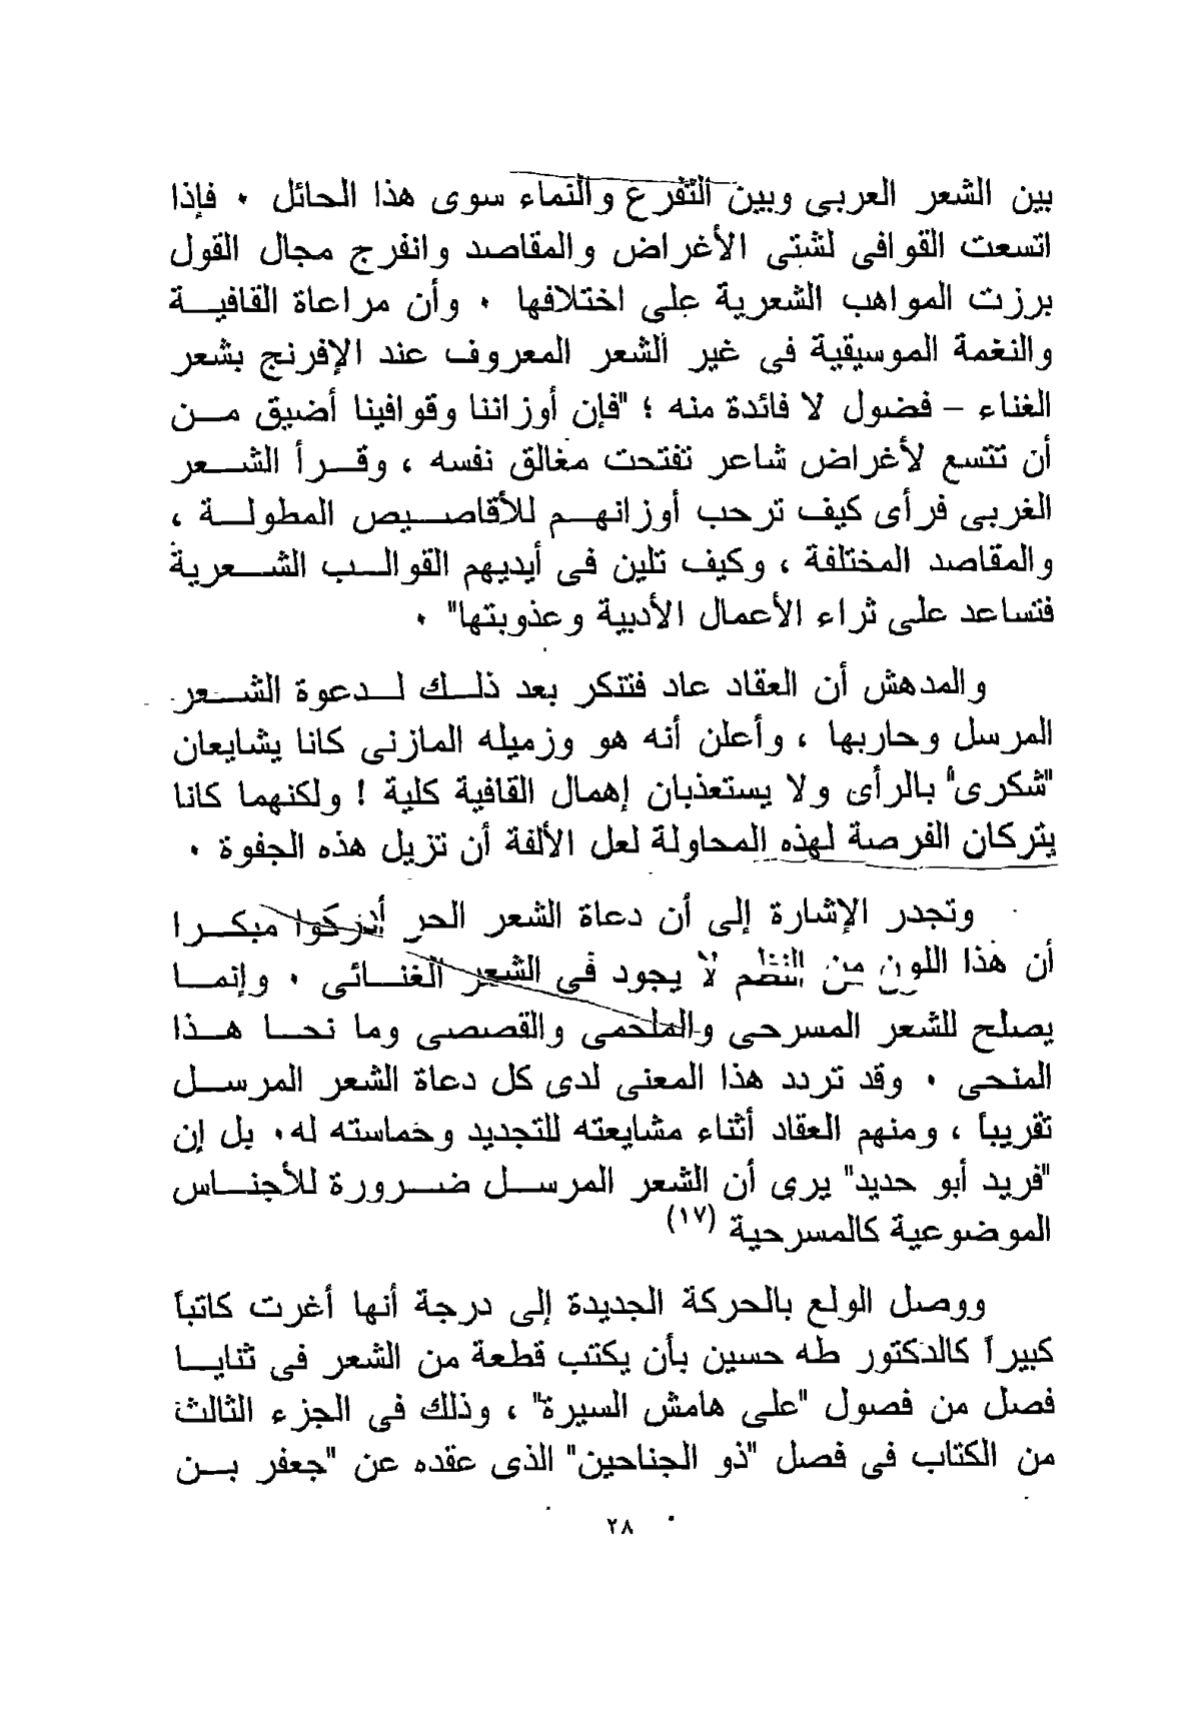 بين الشعر العربى وبين التفرع والنماء سوى هذا الحائل ٠ فإذا
اتسعت القوافى لشتى الأغراض والمقاصد وانفرج مجال القول
برزت المواهب الشعرية على اختلافها ٠ وأن مراعاة القافيـــة
والنغمة الموسيقية فى غير الشعر المعروف عند الإفرنج بشعر
الغناء – فضول لا فائدة منه ؛ "فإن أوزاننا وقوافينا أضيق مـــن
أن تتسع لأغراض شاعر تفتحت مغالق نفسه ، وقـــرأ الشـــعر
الغربى فرأى كيف ترحب أوزانهـــم للأقاصـــيص المطولـــة ،
والمقاصد المختلفة ، وكيف تلين فى أيديهم القوالـــب الشـــعرية
فتساعد على ثراء الأعمال الأدبية وعذوبتها" ٠
والمدهش أن العقاد عاد فتنكر بعد ذلـــك لـــدعوة الشـــعر
المرسل وحاربها ، وأعلن أنه هو وزميله المازنى كانا يشايعان
"شكرى" بالرأى ولا يستعذبان إهمال القافية كلية ! ولكنهما كانا
يتركان الفرصة لهذه المحاولة لعل الألفة أن تزيل هذه الجفوة ٠
وتجدر الإشارة إلى أن دعاة الشعر الحر أدركوا مبكـــرا
أن هذا اللون من النظم لا يجود فى الشعر الغنـــائى ٠ وإنمـــا
يصلح للشعر المسرحى والملحمى والقصصى وما نحـــا هـــذا
المنحى ٠ وقد تردد هذا المعنى لدى كل دعاة الشعر المرســـل
تقريباً ، ومنهم العقاد أثناء مشايعته للتجديد وحماسته له٠ بل إن
"فريد أبو حديد" يرى أن الشعر المرســـل ضـــرورة للأجنـــاس
الموضوعية كالمسرحية (١٧)
ووصل الولع بالحركة الجديدة إلى درجة أنها أغرت كاتباً
كبيراً كالدكتور طه حسين بأن يكتب قطعة من الشعر فى ثنايـــا
فصل من فصول "على هامش السيرة" ، وذلك فى الجزء الثالث
من الكتاب فى فصل "ذو الجناحين" الذى عقده عن "جعفر بـــن
٢٨